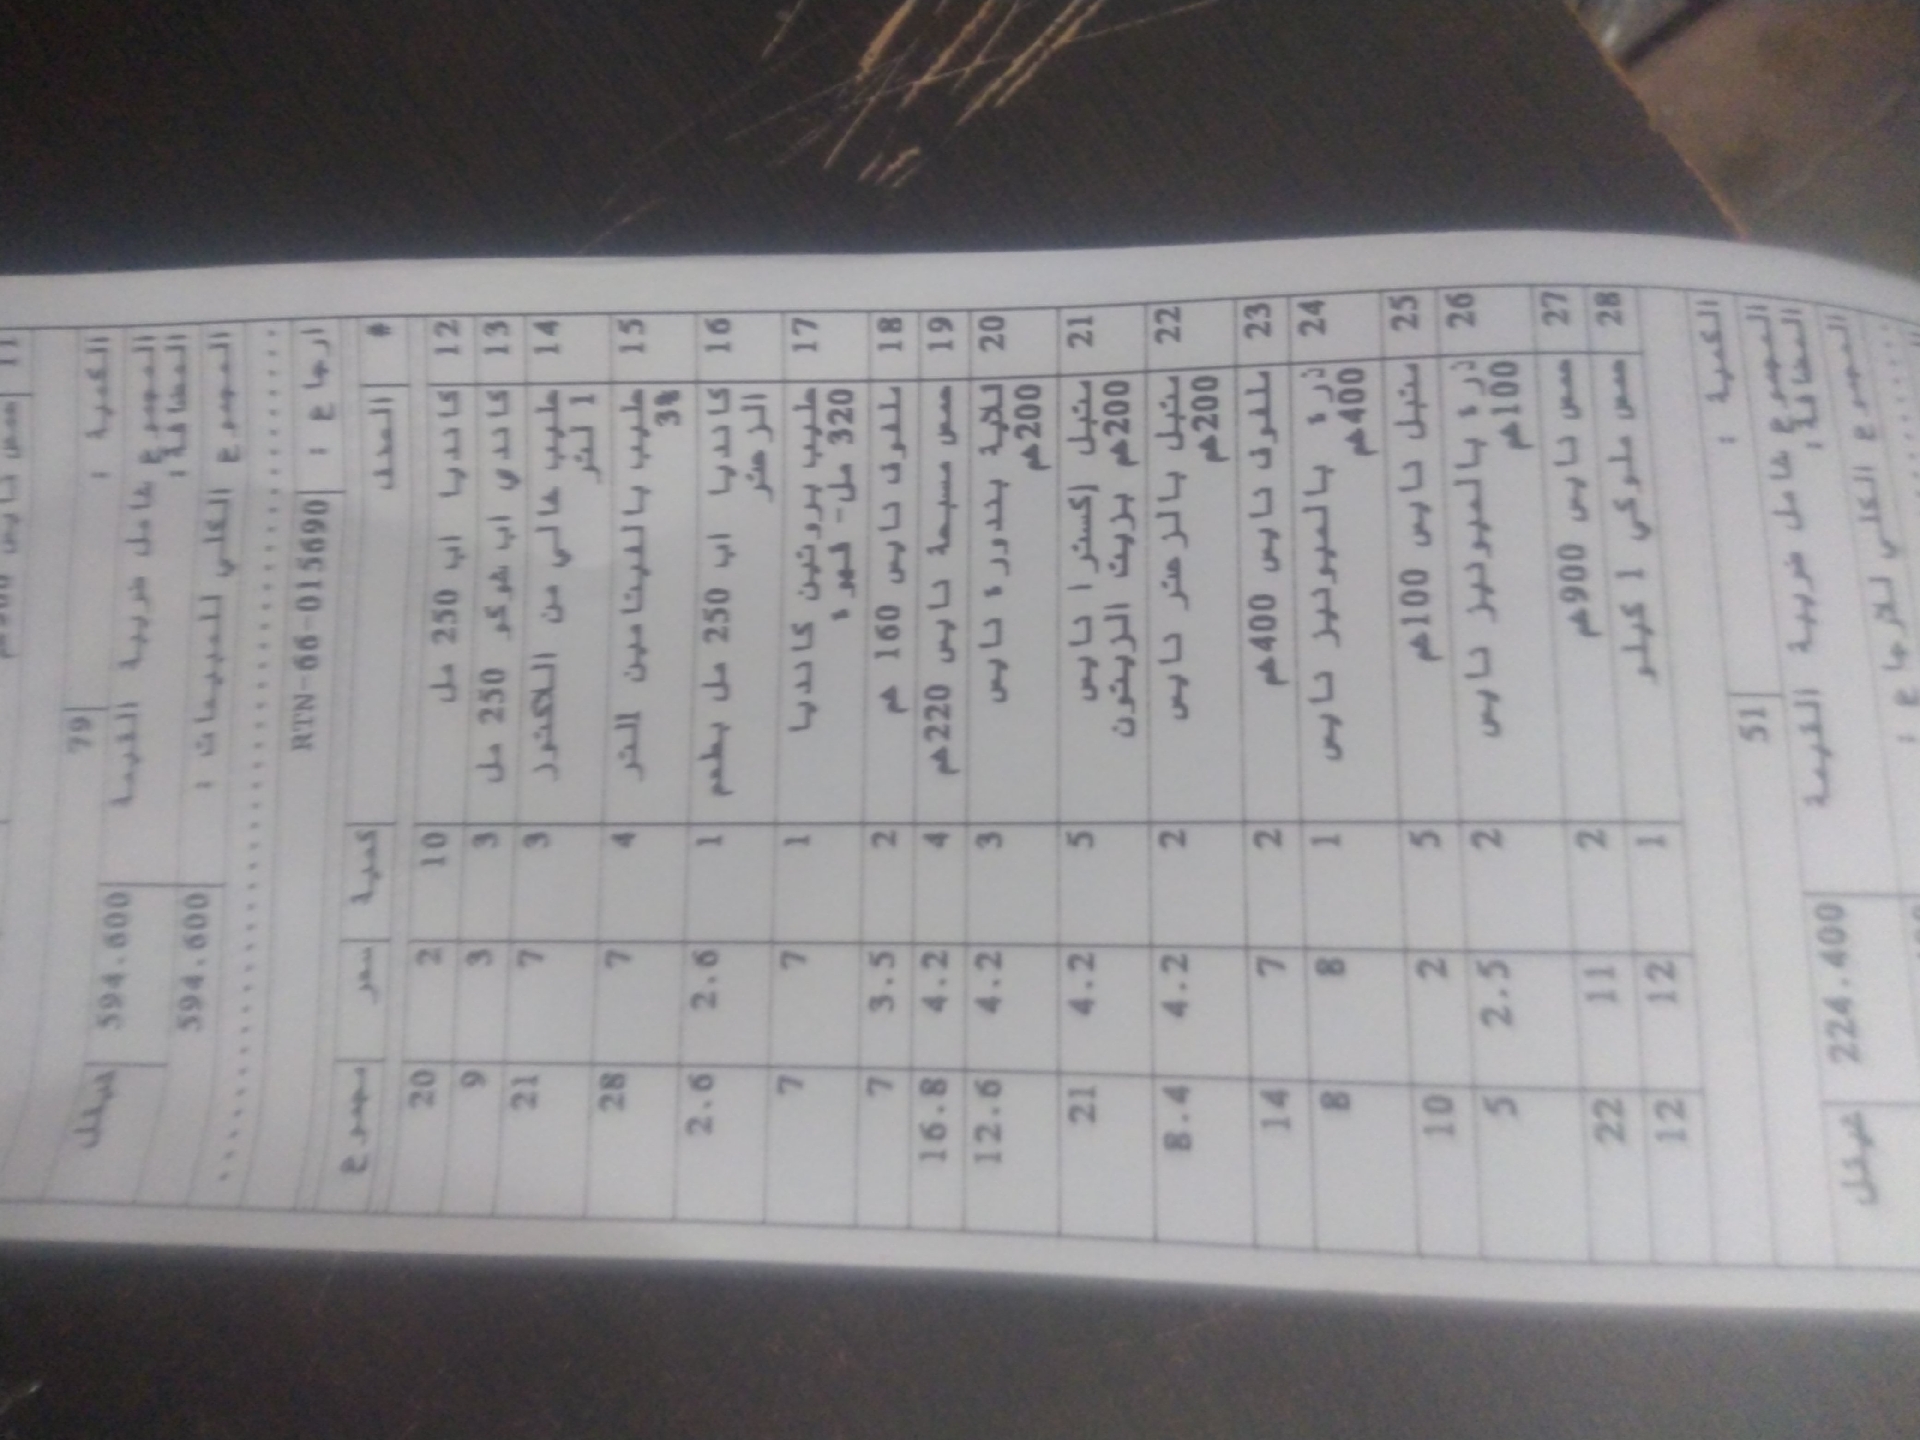 11
الكمية : 79
المجموع شامل ضريبة القيمة 594.600 شيكل
المضافة:
المجموع الكلي للمبيعات : 594.600
ارجاع : RTN-66-015690
# الصنف كمية سعر مجموع
12 كانديا اب 250 مل 10 2 20
13 كاندي اب شوكو 250 مل 3 3 9
14 حليب خالي من اللاكتوز 3 7 21
1 لتر
15 حليب بالفيتامين لتر 4 7 28
3%
16 كانديا اب 250 مل بطعم 1 2.6 2.6
17 حليب بروتين كانديا 1 7 7
320 مل- قهوة
18 ملفوف نايس 160 غم 2 3.5 7
19 حمص مسبحة نايس 220غم 4 4.2 16.8
20 قلاية بندورة نايس 3 4.2 12.6
200غم
21 متبل إكسترا نايس 5 4.2 21
200غم بزيت الزيتون
22 متبل بالزعتر نايس 2 4.2 8.4
200غم
23 ملفوف نايس 400غم 2 7 14
24 ذرة بالميونيز نايس 1 8 8
400غم
25 متبل نايس 100غم 5 2 10
26 ذرة بالميونيز نايس 2 2.5 5
100غم
27 حمص نايس 900غم 2 11 22
28 حمص ملوكي 1 كيلو 1 12 12
الكمية : 51
المجموع شامل ضريبة القيمة 224.400 شيكل
المضافة:
المجموع الكلي للارجاع :